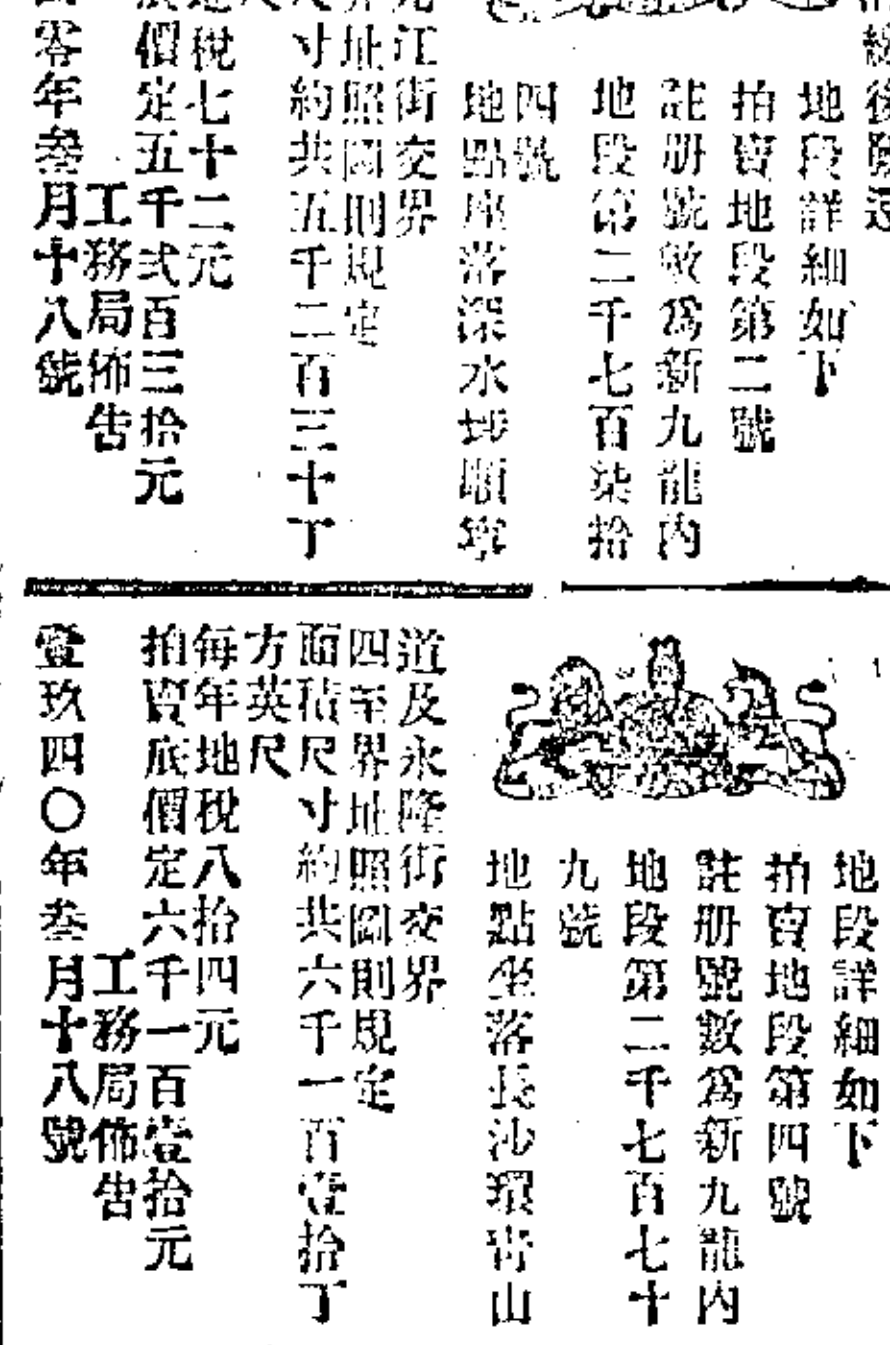 地段詳細如下
拍賣地段第二號
註册號數爲新九龍內
地段第二千七百柒拾
四號
地點座落深水埗順寧
江街交界
界址照圖則規定
尺寸約共五千二百三十丁
尺
稅七十二元
底價定五千弍百三拾元
工務局佈告
零年叁月十八號
地段詳細如下
拍賣地段第四號
註册號數爲新九龍內
地段第二千七百七十
九號
地點坐落長沙環靑山
道及永隆街交界
四至界址照圖則規定
面積尺寸約共六千一百壹拾丁
方英尺
每年地稅八拾四元
拍賣底價定六千一百壹拾元
工務局佈告
壹玖四〇年叁月十八號